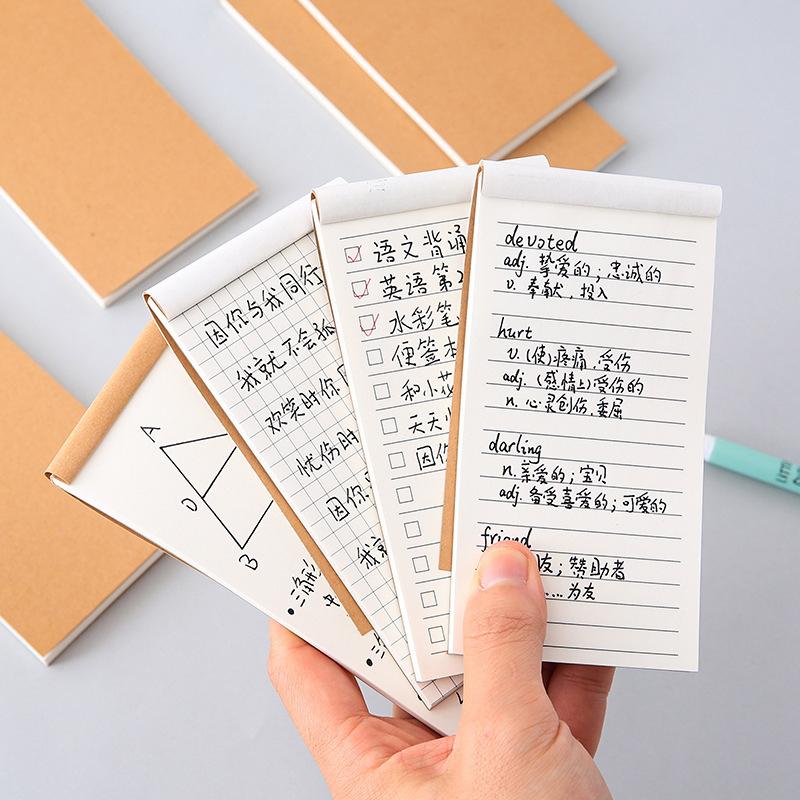 devoted
adj. 挚爱的；忠诚的
v. 奉献，投入
hurt
v. (使)疼痛，受伤
adj. (感情上)受伤的
n. 心灵创伤，委屈
darling
n. 亲爱的；宝贝
adj. 备受喜爱的；可爱的
friend
友；赞助者
....为友
语文背诵
英语第2
水彩笔
便签本
和小花
天天
因你
因你与我同行
我就不会孤
欢笑时你
忧伤时
因你
我就
A
D
B
三角形
中